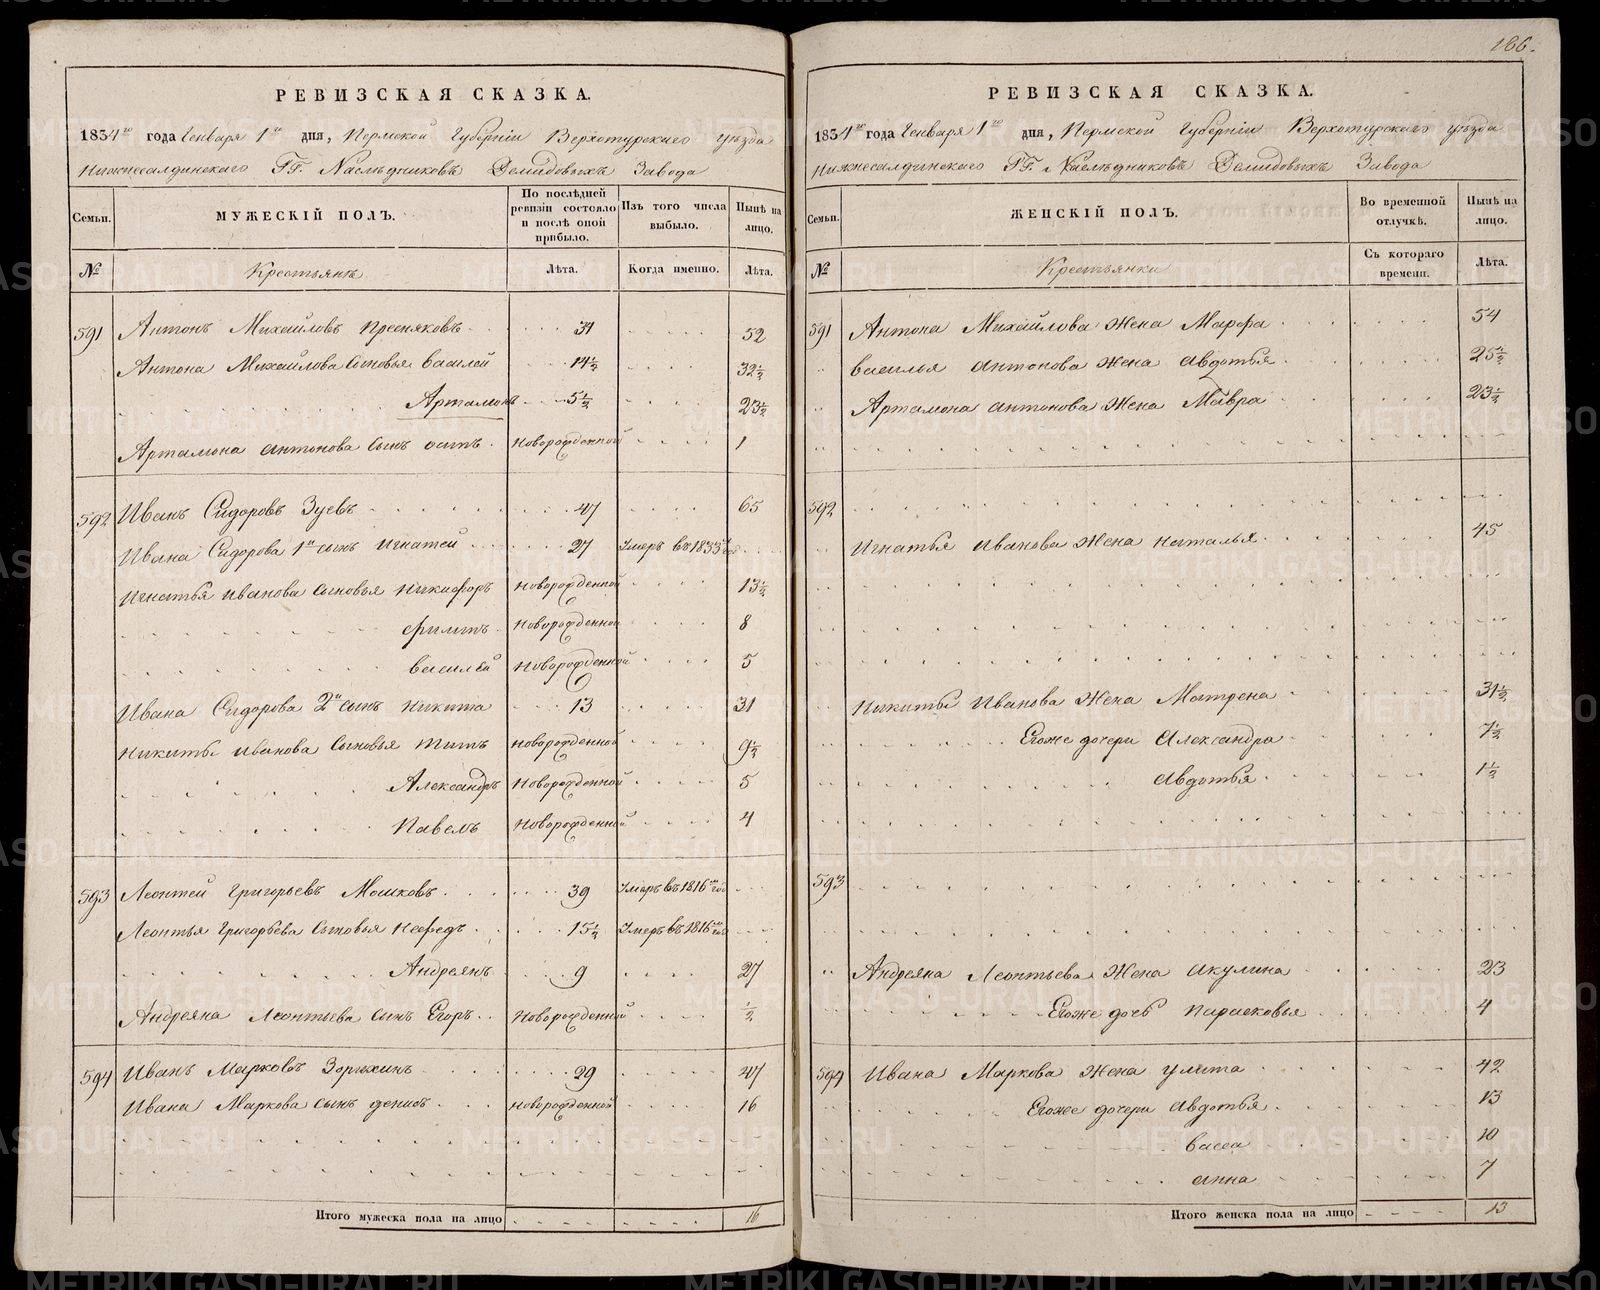 РЕВИЗСКАЯ СКАЗКА.
1834го года Генваря 1го дня, Пермской Губерніи Верхотурскаго уѣзда
Нижнесалдинскаго ГГ. Наслѣдниковъ Демидовыхъ Завода
Семьи. МУЖЕСКІЙ ПОЛЪ. По послѣдней ревизіи состояло и послѣ оной прибыло. Изъ того числа выбыло. Нынѣ на лицо.
№ Крестьянъ Лѣта. Когда именно. Лѣта.
591 Антонъ Михайловъ Пресняковъ 31 52
Антона Михайлова Сыновья Василей 14½ 32½
Артамонъ 5½ 23½
Артамона Антонова Сынъ Осипъ Новорожденной 1
592 Иванъ Сидоровъ Зуевъ 47 65
Ивана Сидорова 1й сынъ Игнатей 27 Умеръ въ 1833м год
Игнатья Иванова Сыновья Никифоръ Новорожденной 13½
Филипъ Новорожденной 8
Василей Новорожденной 5
Ивана Сидорова 2й сынъ Никита 13 31
Никиты Иванова Сыновья Титъ Новорожденной 9½
Александръ Новорожденной 5
Павелъ Новорожденной 4
593 Леонтей Григорьевъ Мошковъ 39 Умеръ въ 1816м год
Леонтья Григорьева Сыновья Нефедъ 15½ Умеръ въ 1816м год
Андреянъ 9 27
Андреяна Леонтьева Сынъ Егоръ Новорожденной ½
594 Иванъ Марковъ Зорихинъ 29 47
Ивана Маркова Сынъ Денисъ Новорожденной 16
Итого мужеска пола на лицо 16
186.
РЕВИЗСКАЯ СКАЗКА.
1834го года Генваря 1го дня, Пермской Губерніи Верхотурскаго уѣзда
Нижнесалдинскаго ГГ. Наслѣдниковъ Демидовыхъ Завода
Семьи. ЖЕНСКІЙ ПОЛЪ. Во временной отлучкѣ. Нынѣ на лицо.
№ Крестьянки Съ котораго времени. Лѣта.
591 Антона Михайлова Жена Марфа 54
Василья Антонова Жена Авдотья 25½
Артамона Антонова Жена Мавра 23½
592
Игнатья Иванова Жена Наталья 45
Никиты Иванова Жена Матрена 31½
Егоже дочери Александра 7½
Авдотья 1½
593
Андреяна Леонтьева Жена Акулина 23
Егоже дочь Парасковья 4
594 Ивана Маркова Жена Улита 42
Егоже дочери Авдотья 13
Васса 10
Анна 7
Итого женска пола на лицо 13
METRIKI.GASO-URAL.RU